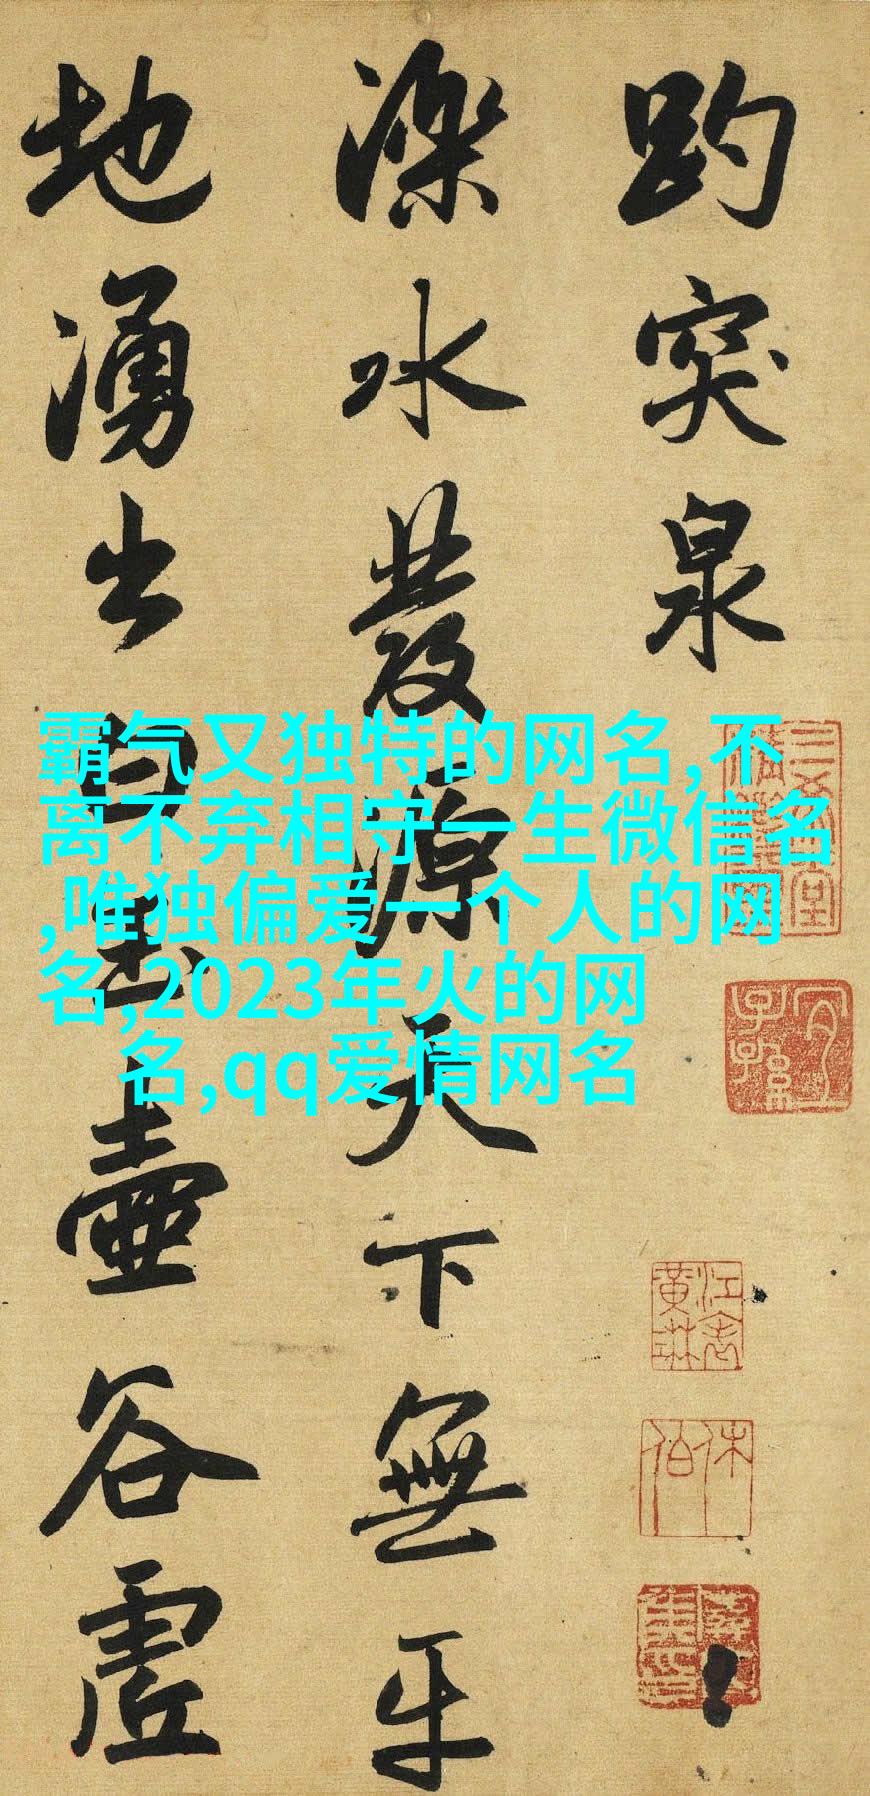 趵突泉
濼水發源天下無平
地湧出白玉壺谷虛
霸气又独特的网名,不
离不弃相守一生微信名
,唯独偏爱一个人的网
名,2023年火的网
名,qq爱情网名
江表
黃琳
休伯